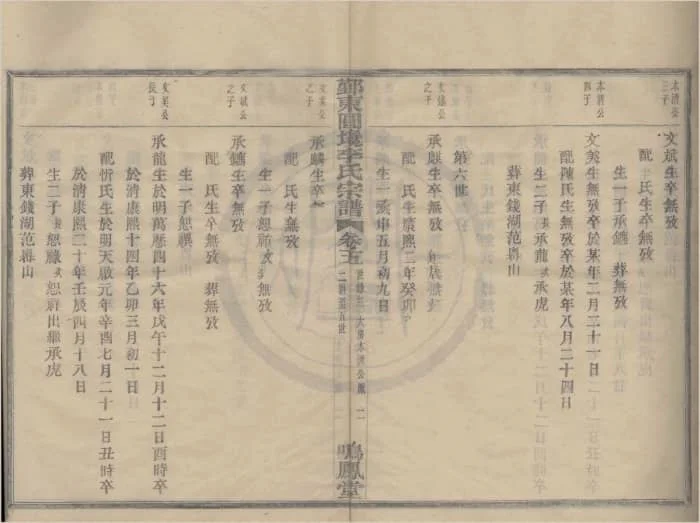 本清公
三子
文斌生卒無攷
配 氏生卒無攷
生一子承鑣 葬無攷
本清公
四子
文美生無攷卒於某年二月三十一日
配陳氏生無攷卒於某年八月二十四日
生二子承龍 承虎
葬東錢湖范 山
第六世
之子
承麒生卒無攷
配 氏生康熙二年癸卯
生一 五月初九日
鄞東圓 李氏宗譜
卷五
大房本清公
鳴鳳堂
文 公
之子
承麟生卒
配 氏生卒無攷
生一子恕 無攷
文斌公
之子
承鑣生卒無攷
配 氏生卒無攷 葬無攷
生一子恕
文美公
長子
承龍生於明萬曆四十六年戊午十二月十二日酉時卒
於清康熙十四年乙卯三月初一日
配忻氏生於明天啟元年辛酉七月二十一日丑時卒
於清康熙 十年壬辰四月十八日
生二子 恕 恕 出繼承虎
葬東錢湖范 山